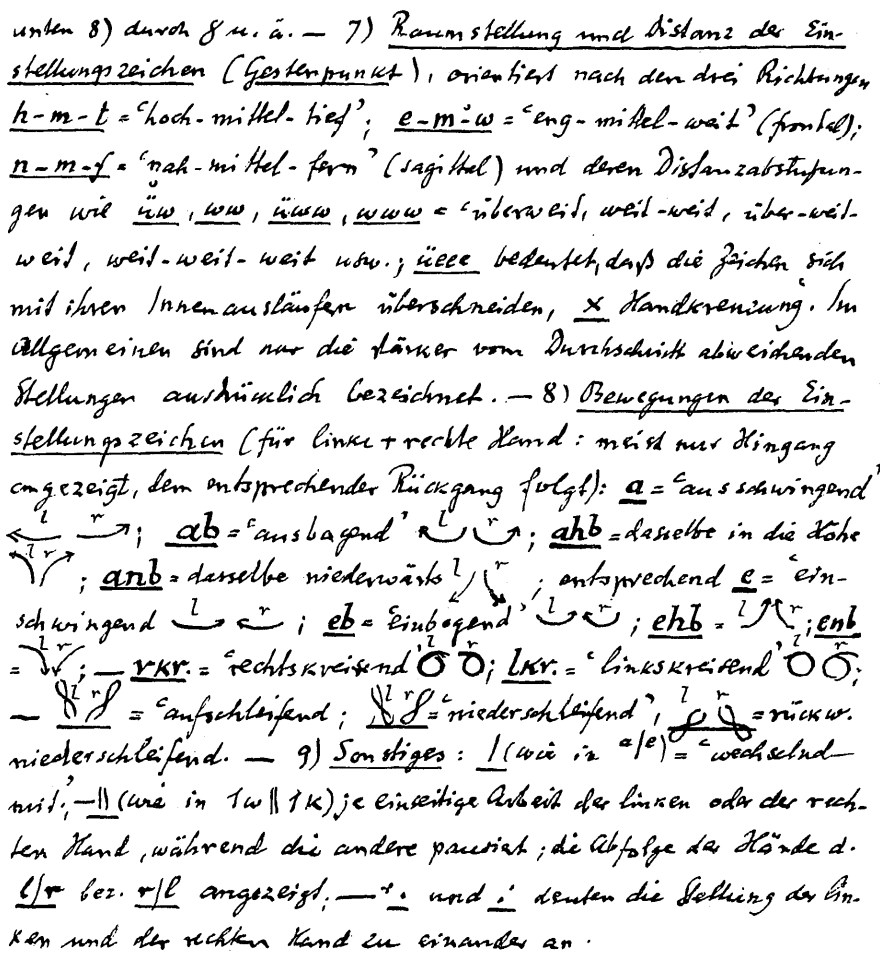 unten 8) durch 8 u. ä. — 7) Raumstellung und Distanz der Ein-
stellungszeichen (Gestenpunkt), orientiert nach den drei Richtungen
h-m-t = 'hoch-mittel-tief'; e-m-w = 'eng-mittel-weit' (frontal);
n-m-f = 'nah-mittel-fern' (sagittal) und deren Distanzabstufun-
gen wie üw, ww, üww, www = 'überweit, weit-weit, über-weit-
weit, weit-weit-weit usw.; üeee bedeutet, daß die Zeichen sich
mit ihren Innenausläufen überschneiden, x 'Handkreuzung'. Im
allgemeinen sind nur die stärker vom Durchschnitt abweichenden
Stellungen ausdrücklich bezeichnet. — 8) Bewegungen der Ein-
stellungszeichen (für linke + rechte Hand: meist nur Hingang
angezeigt, dem entsprechender Rückgang folgt): a = 'ausschwingend'
l r; ab = 'ausbogend' l r; ahb = dasselbe in die Höhe
l r; anb = dasselbe niederwärts l r; entsprechend e = 'ein-
schwingend l r; eb = 'einbogend' l r; ehb = l r; enb
= l r; — rkr. = 'rechtskreisend' l r; lkr. = 'linkskreisend' l r;
— l r = 'aufschleifend; l r = 'niederschleifend', l r = rückw.
niederschleifend. — 9) Sonstiges: / (wie in a/e) = 'wechselnd
mit'; — || (wie in 1w || 1k) je einseitige Arbeit der linken oder der rech-
ten Hand, während die andere pausiert; die Abfolge der Hände d.
l/r bez. r/l angezeigt. — und deuten die Stellung der lin-
ken und der rechten Hand zu einander an.